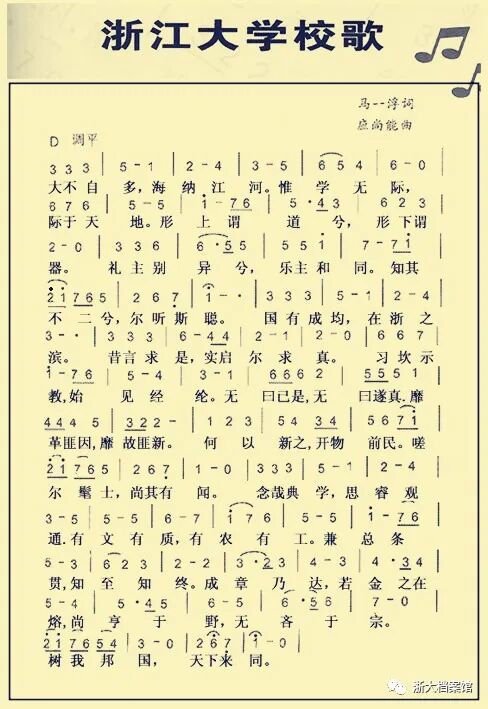 浙江大学校歌
马一浮词
应尚能曲
D 调平
3 3 3 | 5 - 1 | 2 - 4 | 3 - 5 | 6 5 4 | 6 - 0 |
大不自多，海纳江河。惟学无际，
6 7 6 | 5 - 5 | 1 - 7 6 | 5 · 4 3 | 6 2 3 |
际于天地。形上谓道兮，形下谓
2 - 0 | 3 3 6 | 6 · 5 5 | 5 5 1 | 7 - 7 1 |
器。礼主别异兮，乐主和同。知其
2 1 7 6 5 | 1 2 0 | 2 6 7 | 1 - · | 3 3 3 | 5 - 1 | 2 - 4 |
不二兮，尔听斯聪。国有成均，在浙之
3 - · | 3 3 3 | 6 - 4 4 | 2 - 1 | 2 - 0 | 6 - 7 |
滨。昔言求是，实启尔求真。习坎示
1 - 7 6 | 5 - 4 | 3 - 1 | 6 6 6 2 | 5 5 5 1 |
教，始见经纶。无曰已是，无曰遂真．靡
4 4 4 5 | 3 2 2 - | 1 2 3 | 5 4 3 4 | 5 6 7 1 |
革匪因，靡故匪新。何以新之，开物前民。嗟
2 1 7 6 5 | 2 6 7 | 1 - 0 | 3 3 3 | 5 - 1 | 2 - 4 |
尔髦士，尚其有闻。念哉典学，思睿观
3 - 5 | 5 - 5 | 6 - 7 | 1 7 6 | 5 - 5 | 1 - 7 6 |
通．有文有质，有农有工。兼总条
5 - 3 | 6 2 3 | 2 - 2 | 3 2 3 | 4 - 3 | 4 · 3 4 |
贯，知至知终。成章乃达，若金之在
5 - 4 | 5 · 4 5 | 6 - 6 | 6 · 5 6 | 7 - 0 | 7 - 1 |
熔，尚亨于野，无吝于宗。
2 1 7 6 5 4 | 3 - 0 | 2 6 7 | 1 - 0 |
树我邦国，天下来同。
浙大档案馆